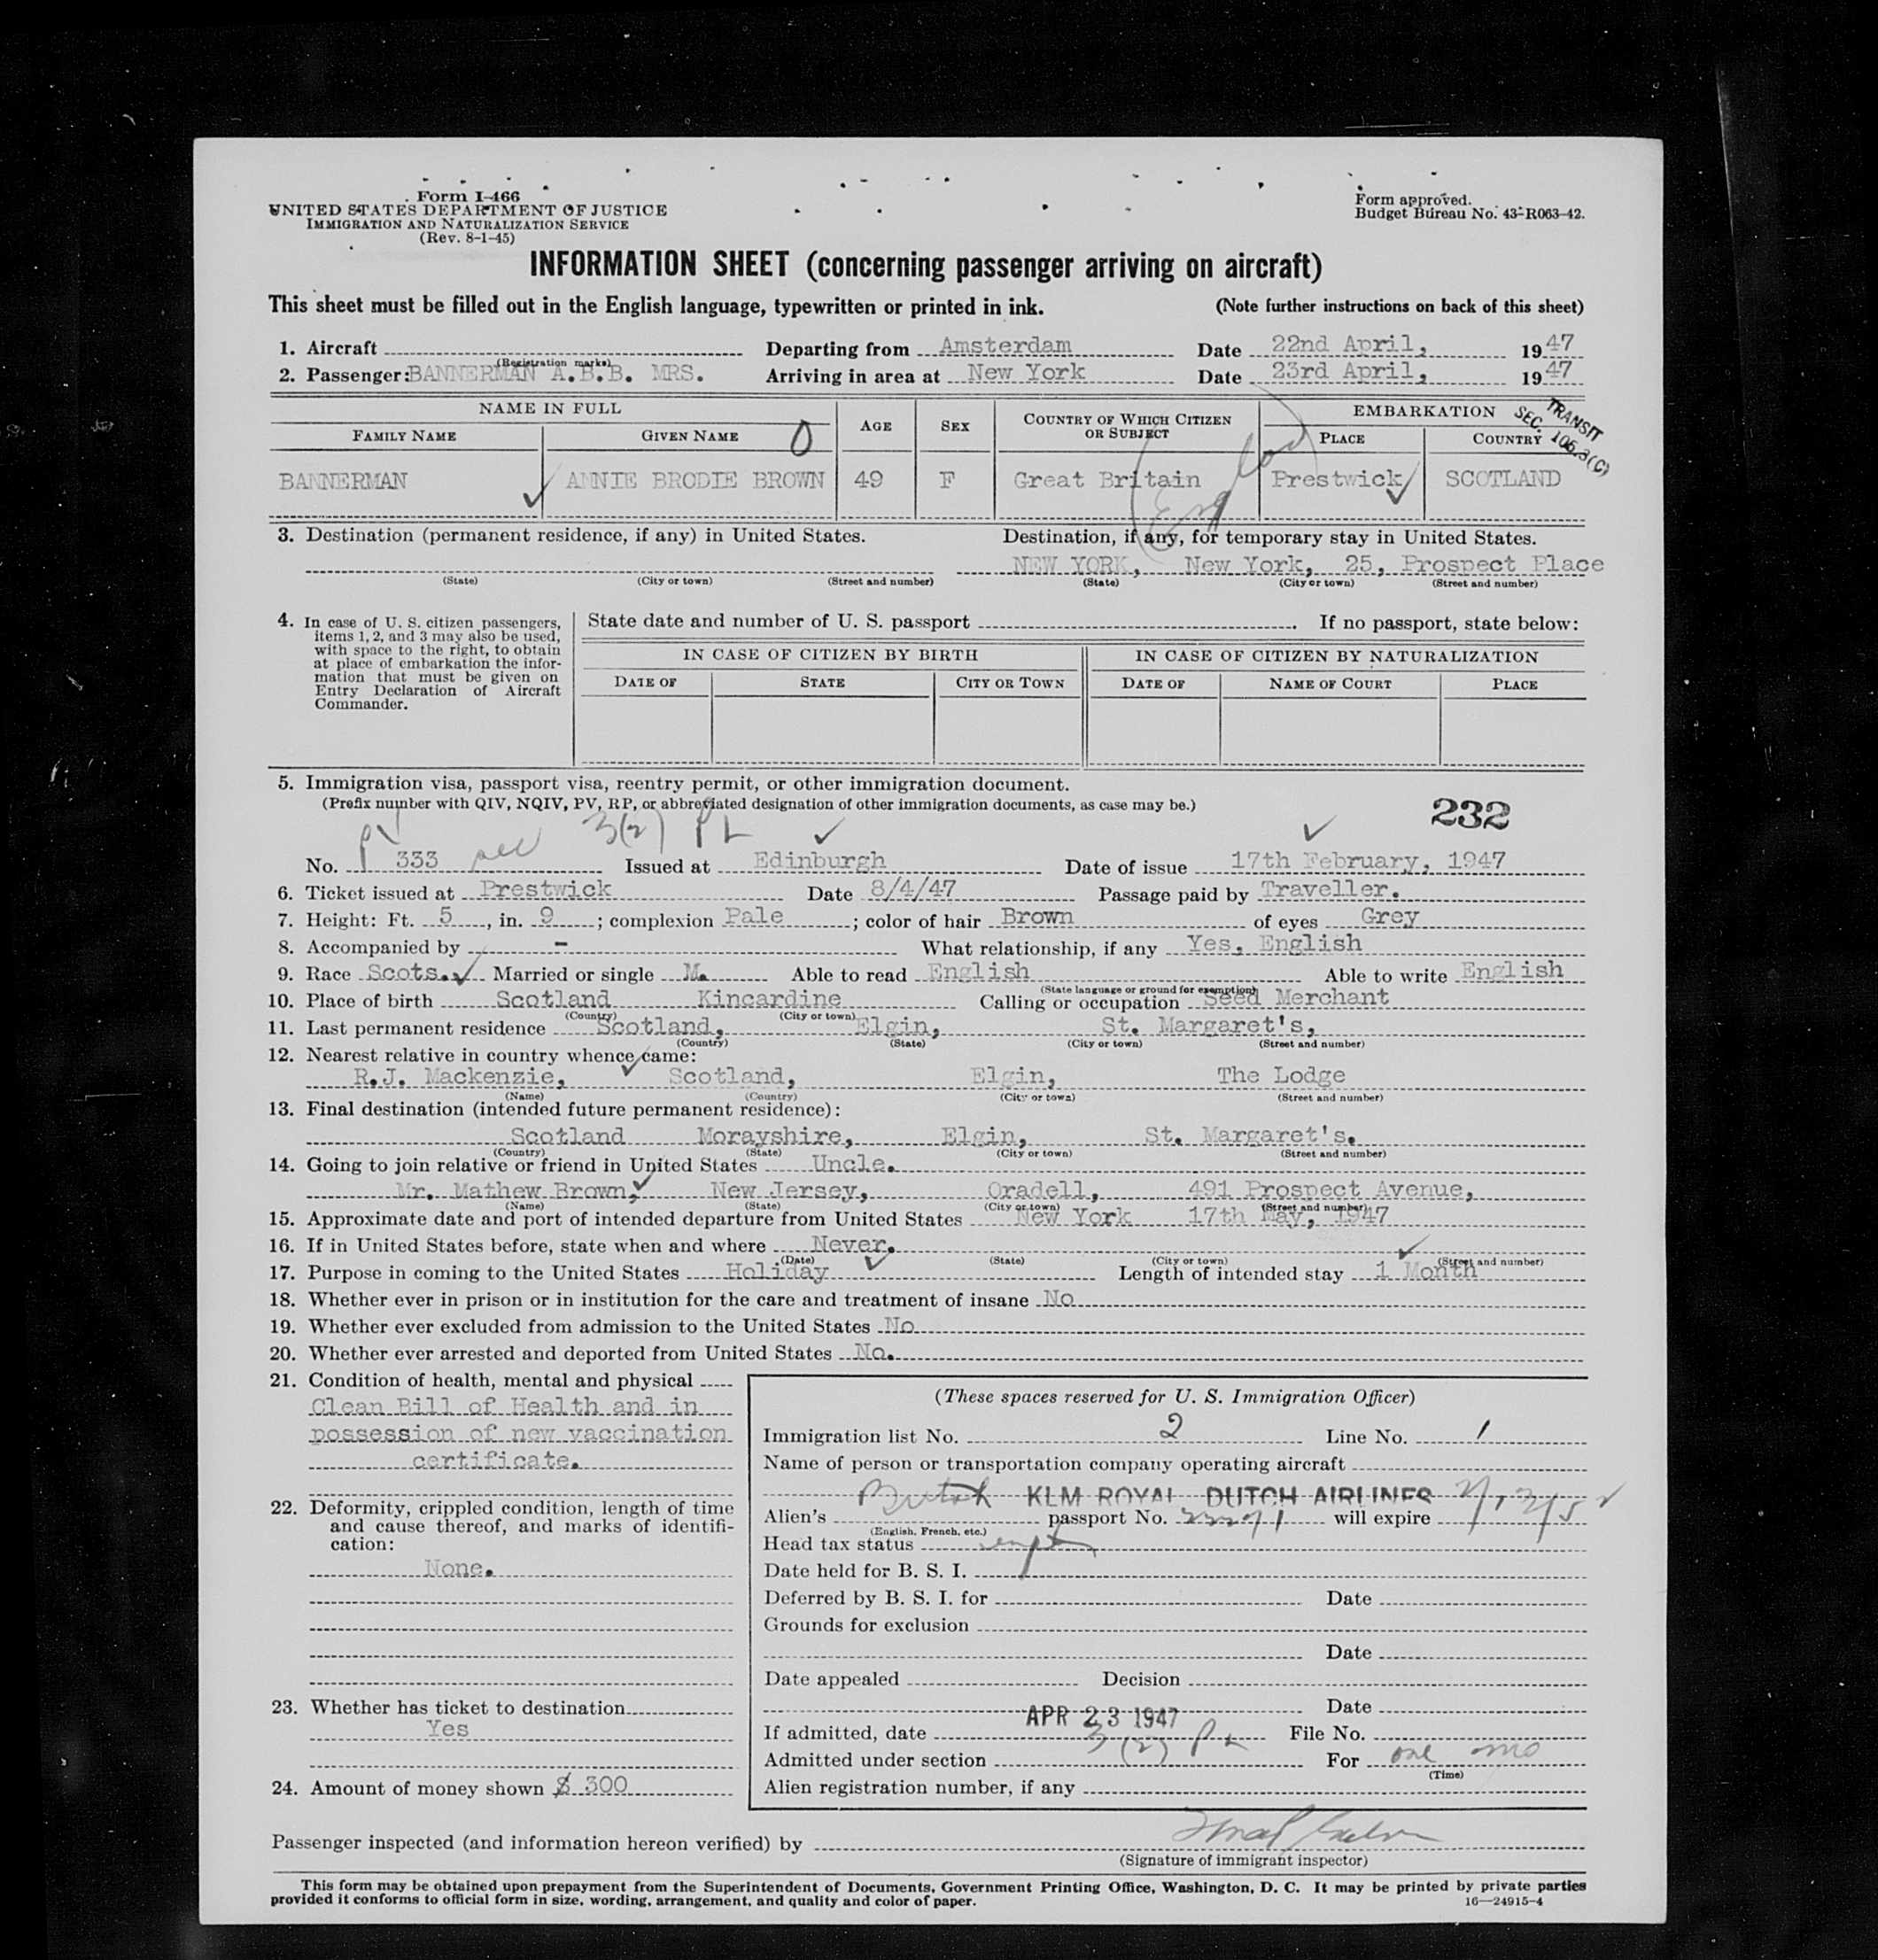 Form I-466
UNITED STATES DEPARTMENT OF JUSTICE
IMMIGRATION AND NATURALIZATION SERVICE
(Rev. 8-1-45)
Form approved.
Budget Bureau No. 43-R063-42.
INFORMATION SHEET (concerning passenger arriving on aircraft)
This sheet must be filled out in the English language, typewritten or printed in ink. (Note further instructions on back of this sheet)
1. Aircraft Departing from Amsterdam Date 22nd April, 1947
(Registration marks)
2. Passenger: BANNERMAN A.B.B. MRS. Arriving in area at New York Date 23rd April, 1947
TRANSIT
SEC. 106.3(C)
NAME IN FULL AGE SEX COUNTRY OF WHICH CITIZEN OR SUBJECT EMBARKATION
FAMILY NAME GIVEN NAME PLACE COUNTRY
0
BANNERMAN ANNIE BRODIE BROWN 49 F Great Britain Prestwick SCOTLAND
(England)
3. Destination (permanent residence, if any) in United States. Destination, if any, for temporary stay in United States.
NEW YORK, New York, 25, Prospect Place
(State) (City or town) (Street and number) (State) (City or town) (Street and number)
4. In case of U. S. citizen passengers,
items 1, 2, and 3 may also be used,
with space to the right, to obtain
at place of embarkation the infor-
mation that must be given on
Entry Declaration of Aircraft
Commander.
State date and number of U. S. passport . If no passport, state below:
IN CASE OF CITIZEN BY BIRTH IN CASE OF CITIZEN BY NATURALIZATION
DATE OF STATE CITY OR TOWN DATE OF NAME OF COURT PLACE
5. Immigration visa, passport visa, reentry permit, or other immigration document.
(Prefix number with QIV, NQIV, PV, RP, or abbreviated designation of other immigration documents, as case may be.)
232
3(2)
No. PV 333 Issued at Edinburgh Date of issue 17th February, 1947
6. Ticket issued at Prestwick Date 8/4/47 Passage paid by Traveller.
7. Height: Ft. 5, in. 9; complexion Pale; color of hair Brown of eyes Grey
8. Accompanied by - What relationship, if any Yes, English
9. Race Scots. Married or single M. Able to read English Able to write English
(State language or ground for exemption)
10. Place of birth Scotland Kincardine Calling or occupation Seed Merchant
(Country) (City or town)
11. Last permanent residence Scotland, Elgin, St. Margaret's,
(Country) (State) (City or town) (Street and number)
12. Nearest relative in country whence came:
R.J. Mackenzie, Scotland, Elgin, The Lodge
(Name) (Country) (City or town) (Street and number)
13. Final destination (intended future permanent residence):
Scotland Morayshire, Elgin, St. Margaret's.
(Country) (State) (City or town) (Street and number)
14. Going to join relative or friend in United States Uncle.
Mr. Mathew Brown, New Jersey, Oradell, 491 Prospect Avenue,
(Name) (State) (City or town) (Street and number)
15. Approximate date and port of intended departure from United States New York 17th May, 1947
16. If in United States before, state when and where Never.
(Date) (State) (City or town) (Street and number)
17. Purpose in coming to the United States Holiday Length of intended stay 1 Month
18. Whether ever in prison or in institution for the care and treatment of insane No
19. Whether ever excluded from admission to the United States No
20. Whether ever arrested and deported from United States No.
21. Condition of health, mental and physical
Clean Bill of Health and in
possession of new vaccination
certificate.
22. Deformity, crippled condition, length of time
and cause thereof, and marks of identifi-
cation:
None.
23. Whether has ticket to destination
Yes
24. Amount of money shown $ 300
(These spaces reserved for U. S. Immigration Officer)
Immigration list No. 2 Line No. 1
Name of person or transportation company operating aircraft
KLM ROYAL DUTCH AIRLINES
Alien's British passport No. will expire
(English, French, etc.)
Head tax status
Date held for B. S. I.
Deferred by B. S. I. for Date
Grounds for exclusion
Date
Date appealed Decision
Date
If admitted, date APR 23 1947 File No.
Admitted under section 3(2) For one mo
(Time)
Alien registration number, if any
Passenger inspected (and information hereon verified) by
(Signature of immigrant inspector)
This form may be obtained upon prepayment from the Superintendent of Documents, Government Printing Office, Washington, D. C. It may be printed by private parties
provided it conforms to official form in size, wording, arrangement, and quality and color of paper. 16—24915-4